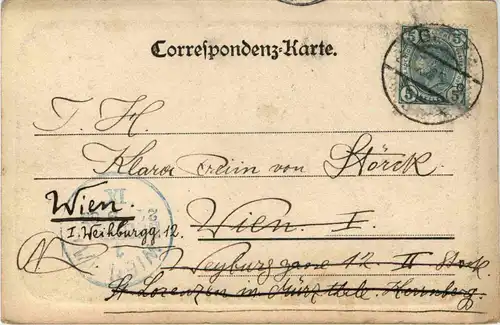 Correspondenz-Karte.
5 5
T. H.
Klara Freiin von Störck
Wien.
Wien I.
I. Weihburgg. 12.
Weyburggasse 12 II Stock
St Lorenzen in Mürzthale
WIEN